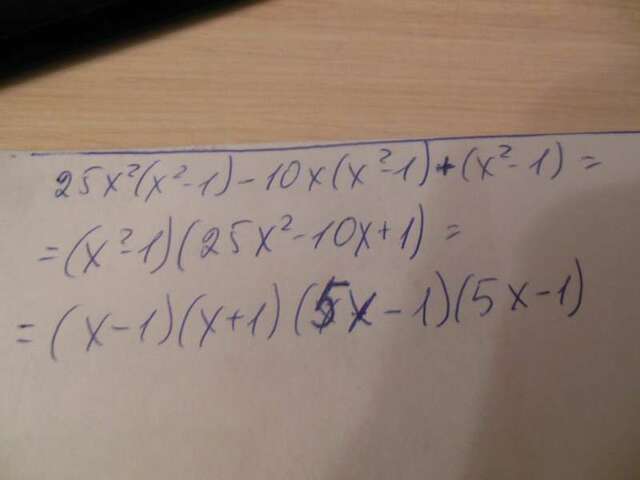 25x²(x²-1)-10x(x²-1)+(x²-1)=
=(x²-1)(25x²-10x+1)=
=(x-1)(x+1)(5x-1)(5x-1)